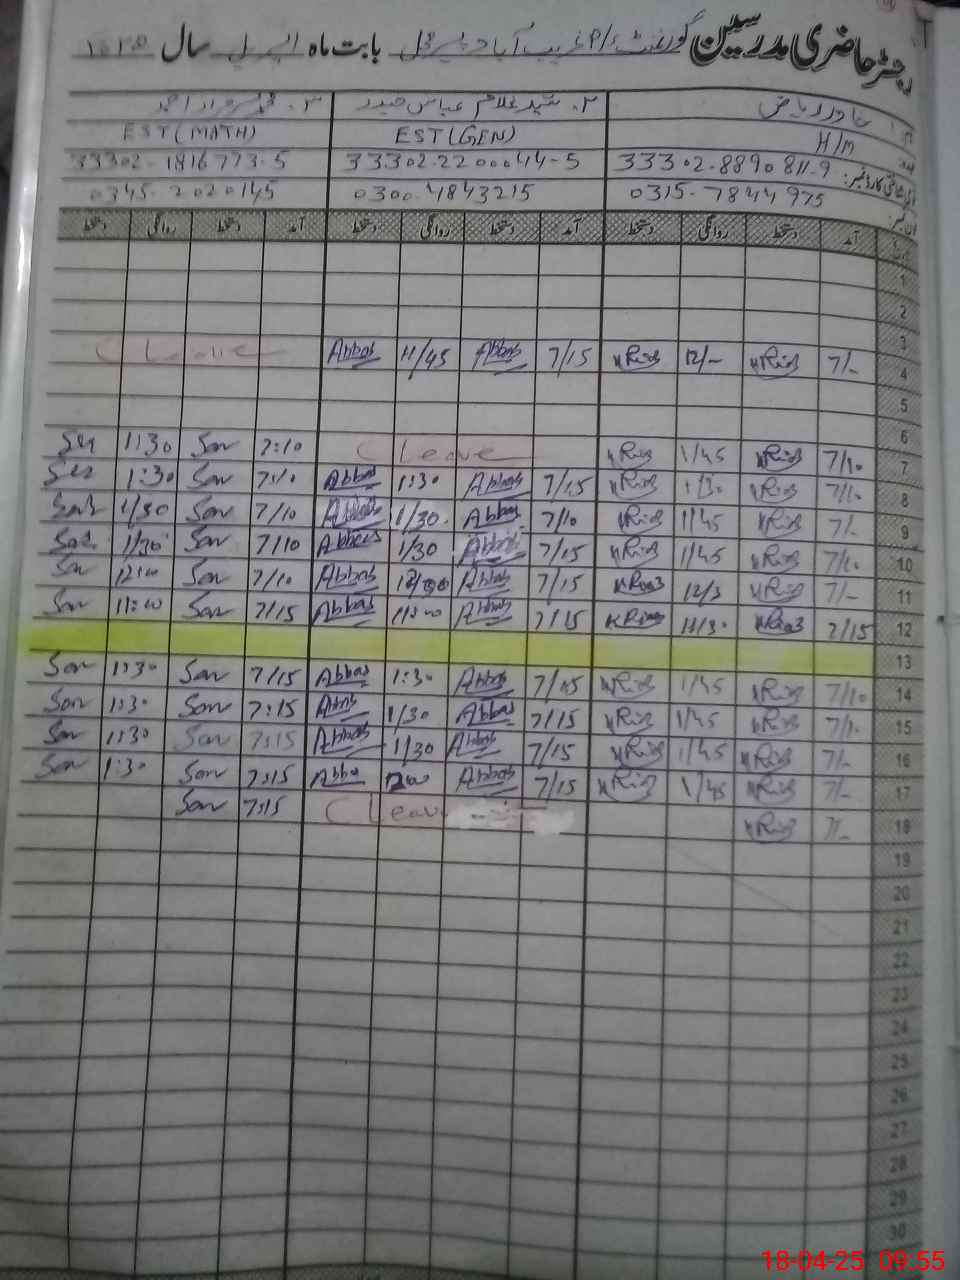 رجسٹر حاضری مدرسین گورنمنٹ P/S غریب آباد بابت ماہ اپریل سال
خاور ریاض ۲۔ سید غلام عباس حیدر ۳۔
H/M EST(GEN) EST(MATH)
33302-8890811-9 33302-2200044-5 33302-1816773-5
0315-7844975 0300-4843215 0345-2020145
آمد دستخط روانگی دستخط آمد دستخط روانگی دستخط آمد دستخط روانگی دستخط
1
2
3
4 7/- KRiaz 12/- KRiaz 7/15 Abbas 11/45 Abbas C Leave
5
6
7 7/10 KRiaz 1/45 KRiaz C Leave 7:10 Sar 1:30
8 7/10 KRiaz 1/30 KRiaz 7/15 Abbas 1:30 Abbas 7:10 Sar 1:30
9 7/- KRiaz 1/45 KRiaz 7/10 Abbas 1/30 Abbas 7/10 Sar 1/30
10 7/10 KRiaz 1/45 KRiaz 7/15 Abbas 1/30 Abbas 7/10 Sar 1/30
11 7/- KRiaz 12/3 KRiaz 7/15 Abbas Abbas 7/10 Sar 12:00 Sar
12 7/15 KRiaz 11/30 KRiaz 7/15 Abbas 11:00 Abbas 7/15 Sar 11:00 Sar
13
14 7/10 KRiaz 1/45 KRiaz 7/15 Abbas 1:30 Abbas 7/15 Sar 1:30 Sar
15 7/10 KRiaz 1/45 KRiaz 7/15 Abbas 1/30 Abbas 7:15 Sar 1:30 Sar
16 7/- KRiaz 1/45 KRiaz 7/15 Abbas 1/30 Abbas 7:15 Sar 1:30 Sar
17 7/- KRiaz 1/45 KRiaz 7/15 Abbas Abba 7:15 Sar 1:30 Sar
18 7/- KRiaz C Leave 7:15 Sar
19
20
21
22
23
24
25
26
27
28
29
30
18-04-25 09:55